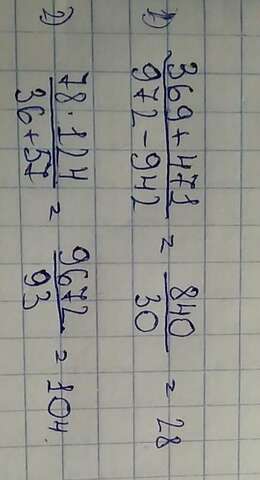 1) 369+471 / 972-942 = 840 / 30 = 28
2) 78·124 / 36+57 = 9672 / 93 = 104.